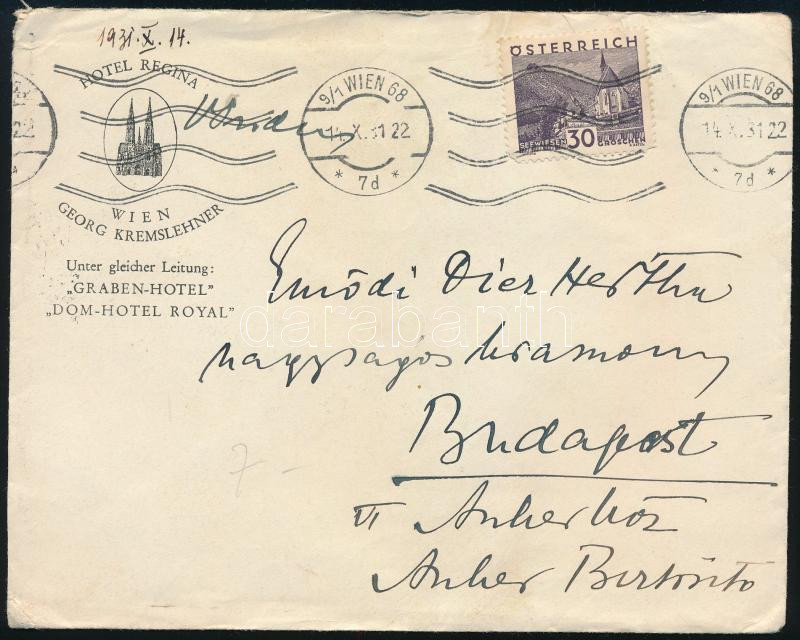 1931.X.14.
HOTEL REGINA
WIEN
GEORG KREMSLEHNER
Unter gleicher Leitung:
„GRABEN-HOTEL"
„DOM-HOTEL ROYAL"
9/1 WIEN 68
14.X.31 22
* 7d *
ÖSTERREICH
30
SEEWIESEN GROSCHEN
9/1 WIEN 68
14.X.31 22
* 7d *
Emődi Dier Hertha
nagyságos
Budapest
VI Anker köz
Anker
7 -
darabanth